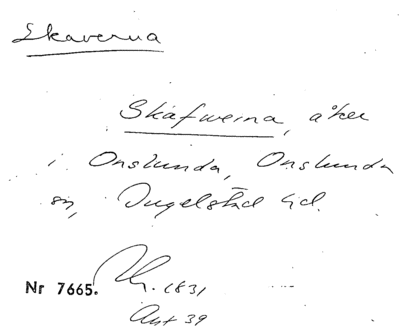 Skaverna
Skafwerna, åker
i Onslunda, Onslunda
sn, Ingelstad hd.
Nr 7665. 1831
Akt 39